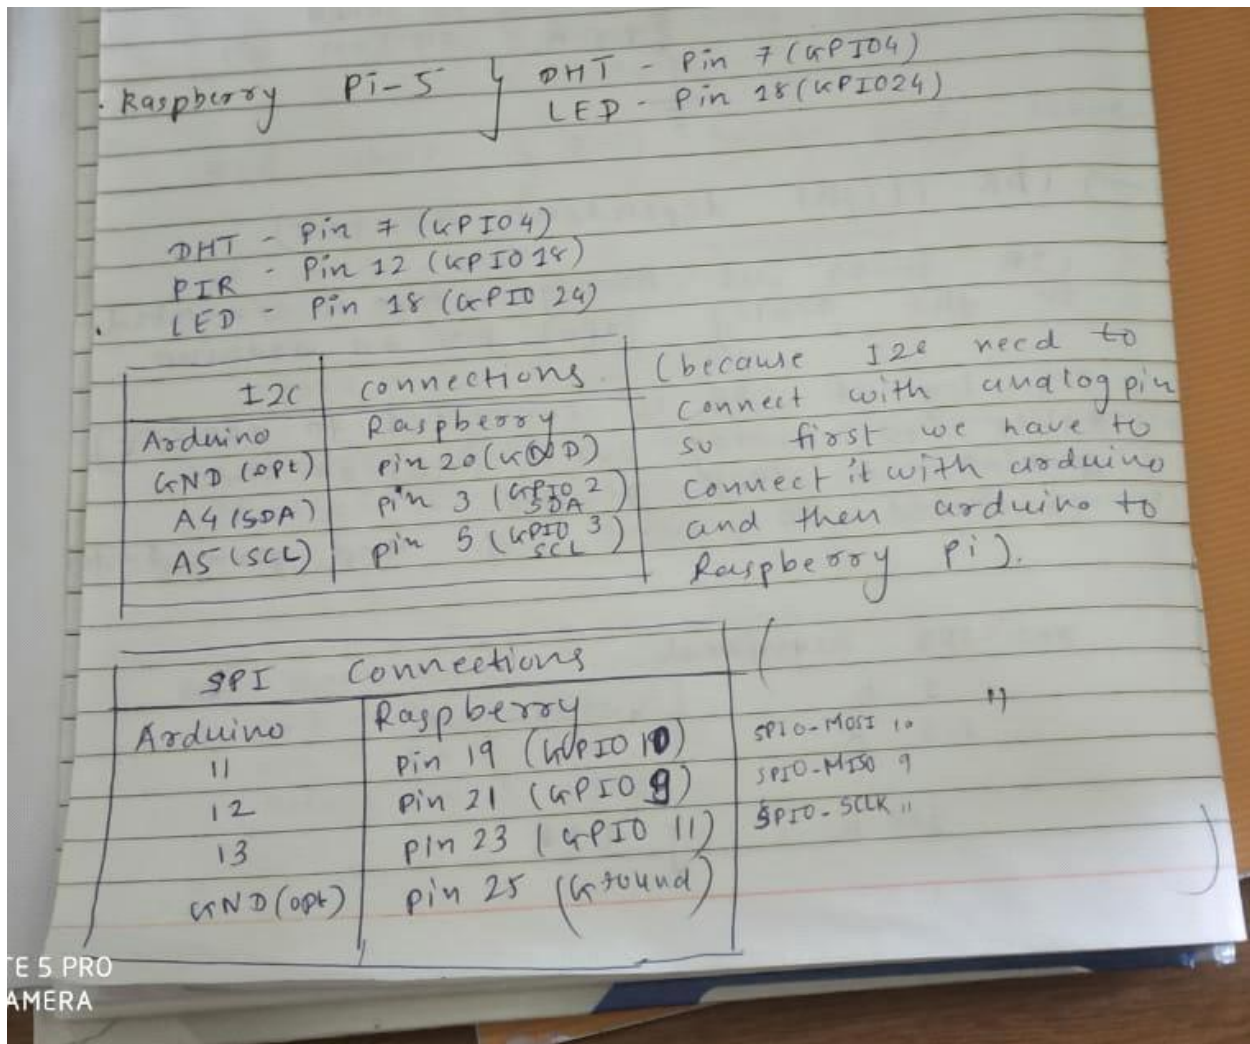 Raspberry Pi-5 { DHT - Pin 7 (GPIO4)
LED - Pin 18 (GPIO24)
DHT - Pin 7 (GPIO4)
PIR - Pin 12 (GPIO18)
LED - Pin 18 (GPIO 24)
I2C connections
Arduino Raspberry
GND (opt) pin 20 (GND)
A4 (SDA) pin 3 (GPIO 2 SDA)
A5 (SCL) pin 5 (GPIO 3 SCL)
(because I2C need to
connect with analog pin
so first we have to
connect it with arduino
and then arduino to
Raspberry Pi).
SPI Connections
Arduino Raspberry
11 Pin 19 (GPIO 10) SPI0-MOSI 10
12 Pin 21 (GPIO 9) SPI0-MISO 9
13 Pin 23 (GPIO 11) SPI0-SCLK 11
GND (opt) Pin 25 (Ground)
"
TE 5 PRO
AMERA